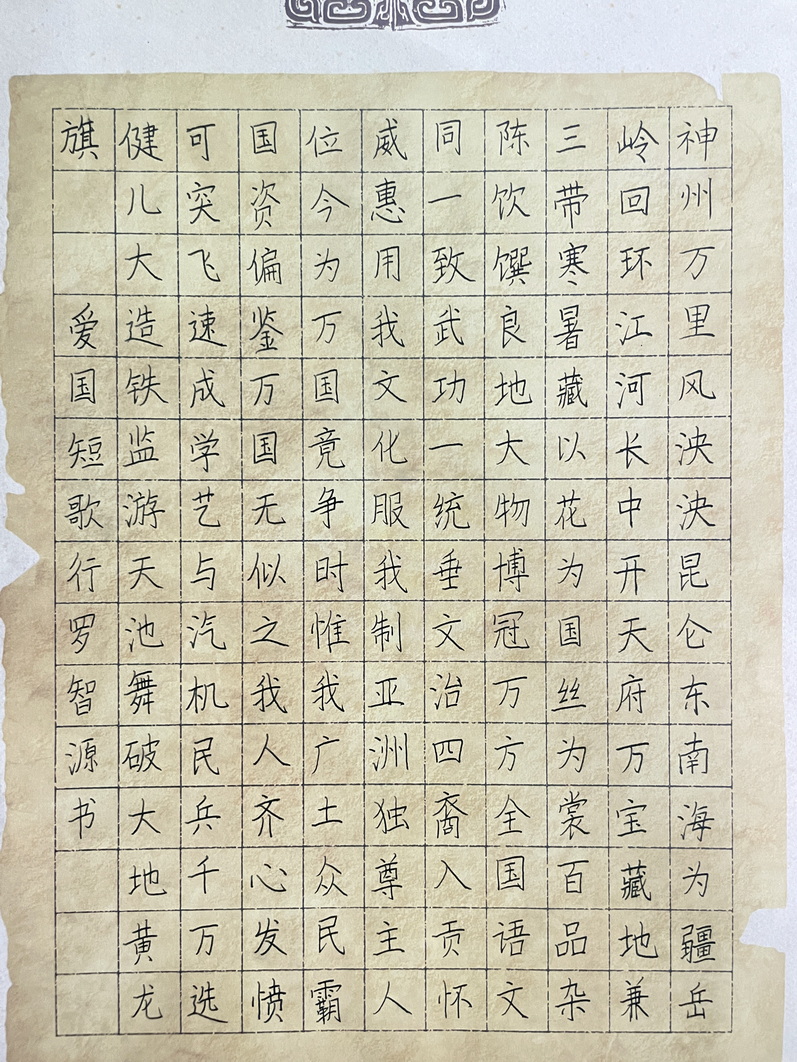 神州万里风泱泱昆仑东南海为疆岳
岭回环江河长中开天府万宝藏地兼
三带寒暑藏以花为国丝为裳百品杂
陈饮馔良地大物博冠万方全国语文
同一致武功一统垂文治四裔入贡怀
威惠用我文化服我制亚洲独尊主人
位今为万国竟争时惟我广土众民霸
国资偏鉴万国无似之我人齐心发愤
可突飞速成学艺与汽机民兵千万选
健儿大造铁监游天池舞破大地黄龙
旗 爱国短歌行罗智源书